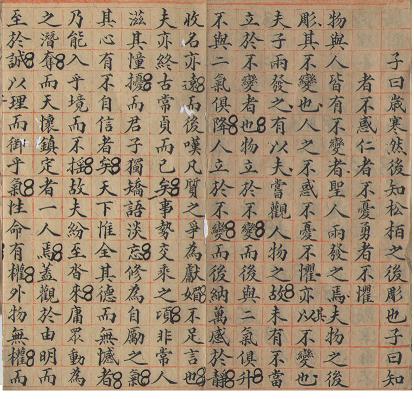 子曰歲寒然後知松柏之後彫也子曰
者不惑仁者不憂勇者不懼
物與人皆有不變者聖人兩發之焉夫物之後
彫其不變也人之不惑不憂不懼亦以俱不變也
夫子兩發之有以夫嘗觀人物之故未有不當
立於不變者也物立於不變而後與二氣俱升
不與二氣俱降人立於不變而後納萬感於靜
收名亦遠而後嘆凡質之爭為獻媚不足言也
夫亦終古常貞而已矣事勢交乘之頃非常人
滋其憧擾而君子獨矯語淡忘修為自勵之氣
其心有不自信者矣天下惟全其德而無憾者
乃能入乎境而不搖故夫紛至沓來庸眾動為
之潛奪而天懷鎮定者一人焉蓋觀於由明而
至於誠以理而御乎氣性命有權外物無權而